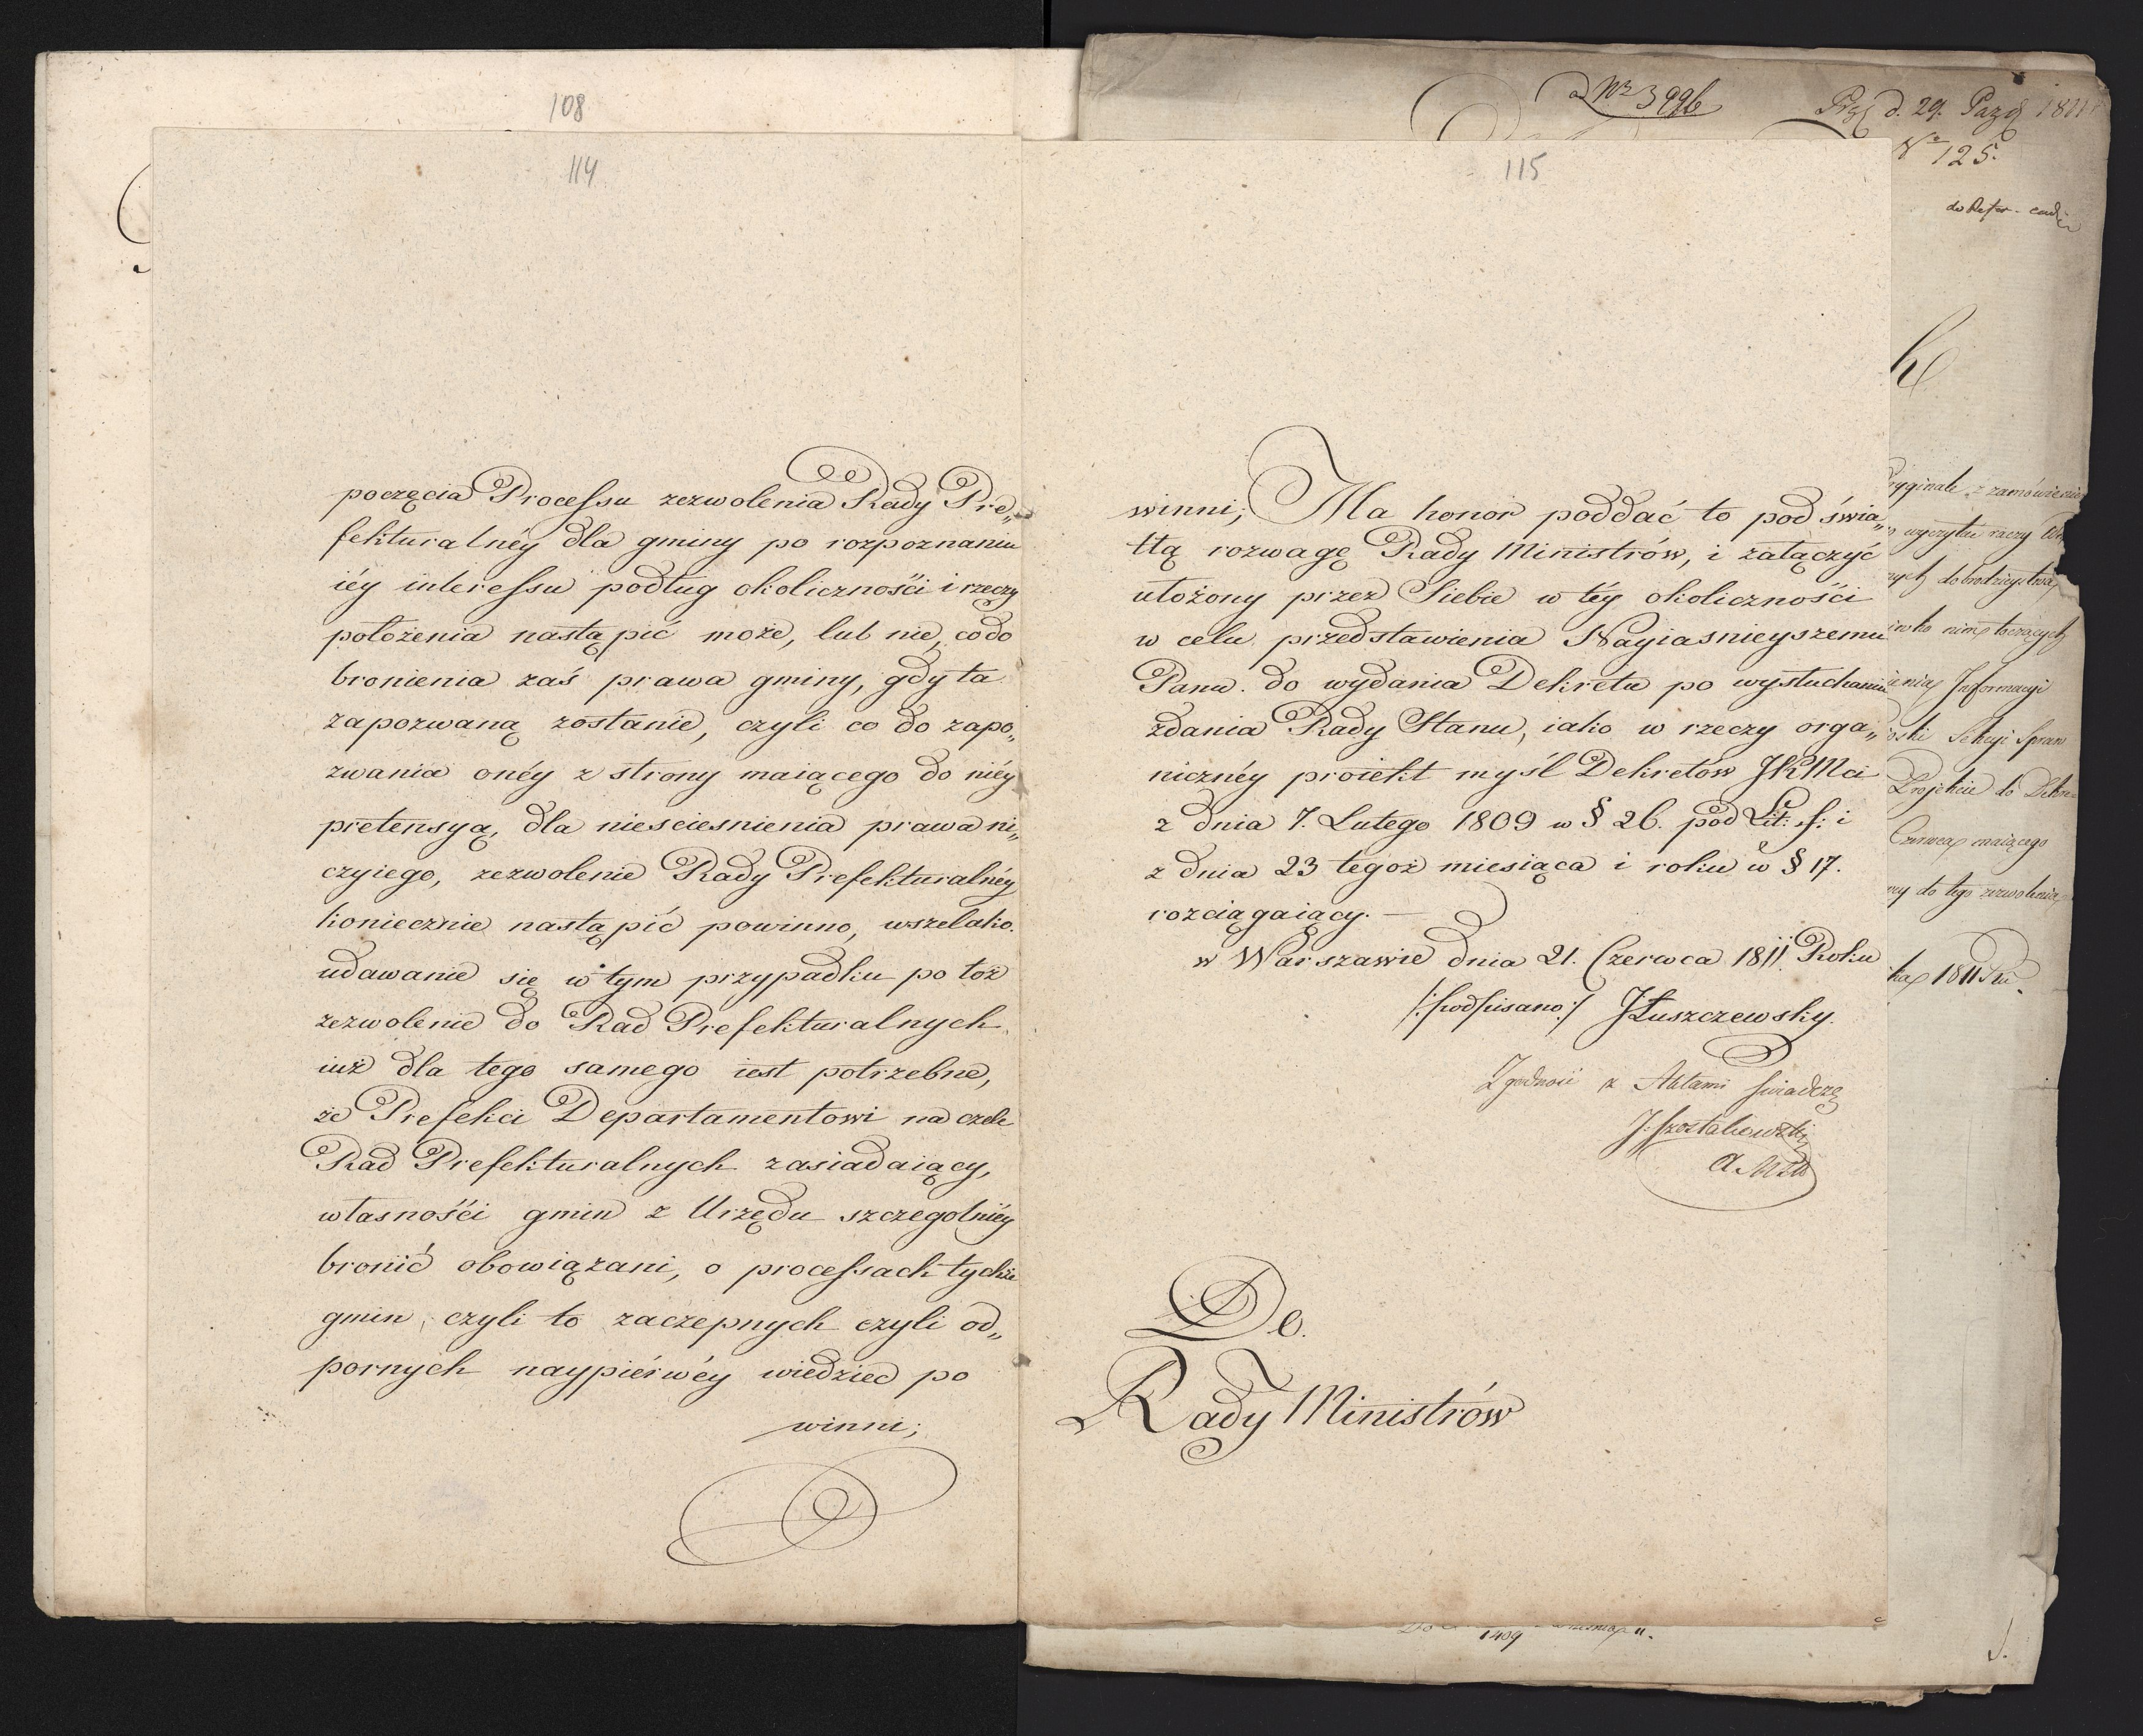 108
114
poczęcia Processu zezwolenia Rady Pre„
fekturalnéy dla gminy po rozpoznaniu
iéy interessu podług okolicznośći i rzeczy
położenia nastąpić może, lub nie, co do
bronienia zaś prawa gminy, gdy ta
zapozwaną zostanie, czyli co do zapo„
zwania onéy z strony maiącego do niéy
pretensyą, dla niesciesnienia prawa ni„
czyiego, zezwolenie Rady Prefekturalnéy
koniecznie nastąpić powinno, wszelako
udawanie się w tym przypadku po toż
zezwolenie do Rad Prefekturalnych
iuż dla tego samego iest potrzebne,
że Prefekci Departamentowi na czele
Rad Prefekturalnych zasiadaiący,
własnośći gmin z Urzędu szczegolniéy
bronić obowiązani, o processach tychże
gmin, czyli to zaczepnych czyli od„
pornych naypiérwéy wiedzieć po
winni;
115
winni; Ma honor poddać to pod świa„
tłą rozwagę Rady Ministrów, i załączyć
ułożony przez Siebie w téy okolicznośći
w celu przedstawienia Nayiasnieyszemu
Panu do wydania Dekretu po wysłuchaniu
zdania Rady Stanu, iako w rzeczy orga„
nicznéy proiekt myśl Dekretów JKMci
z dnia 7. Lutego 1809 w § 26. pod Lit: f: i
z dnia 23 tegoż miesiąca i roku w § 17.
rozciągaiący. —
w Warszawie dnia 21. Czerwca 1811 Roku
/:podpisano:/ JŁuszczewsky.
Zgodność z Aktami świadczę
J: Szostakowski
De.
Rady Ministrów
ad Nr 3996
d. 29. Paźd 1811
No 125.
do Refer.
ryginale z zamówienie
wyczytać raczy
nych dobrodzieystwa
nim toczących
Informacyi
Sekcyi Spraw
Projekcie do Dekre-
Czerwca maiącego
do tego zezwolenia
1811 Ru.
1409